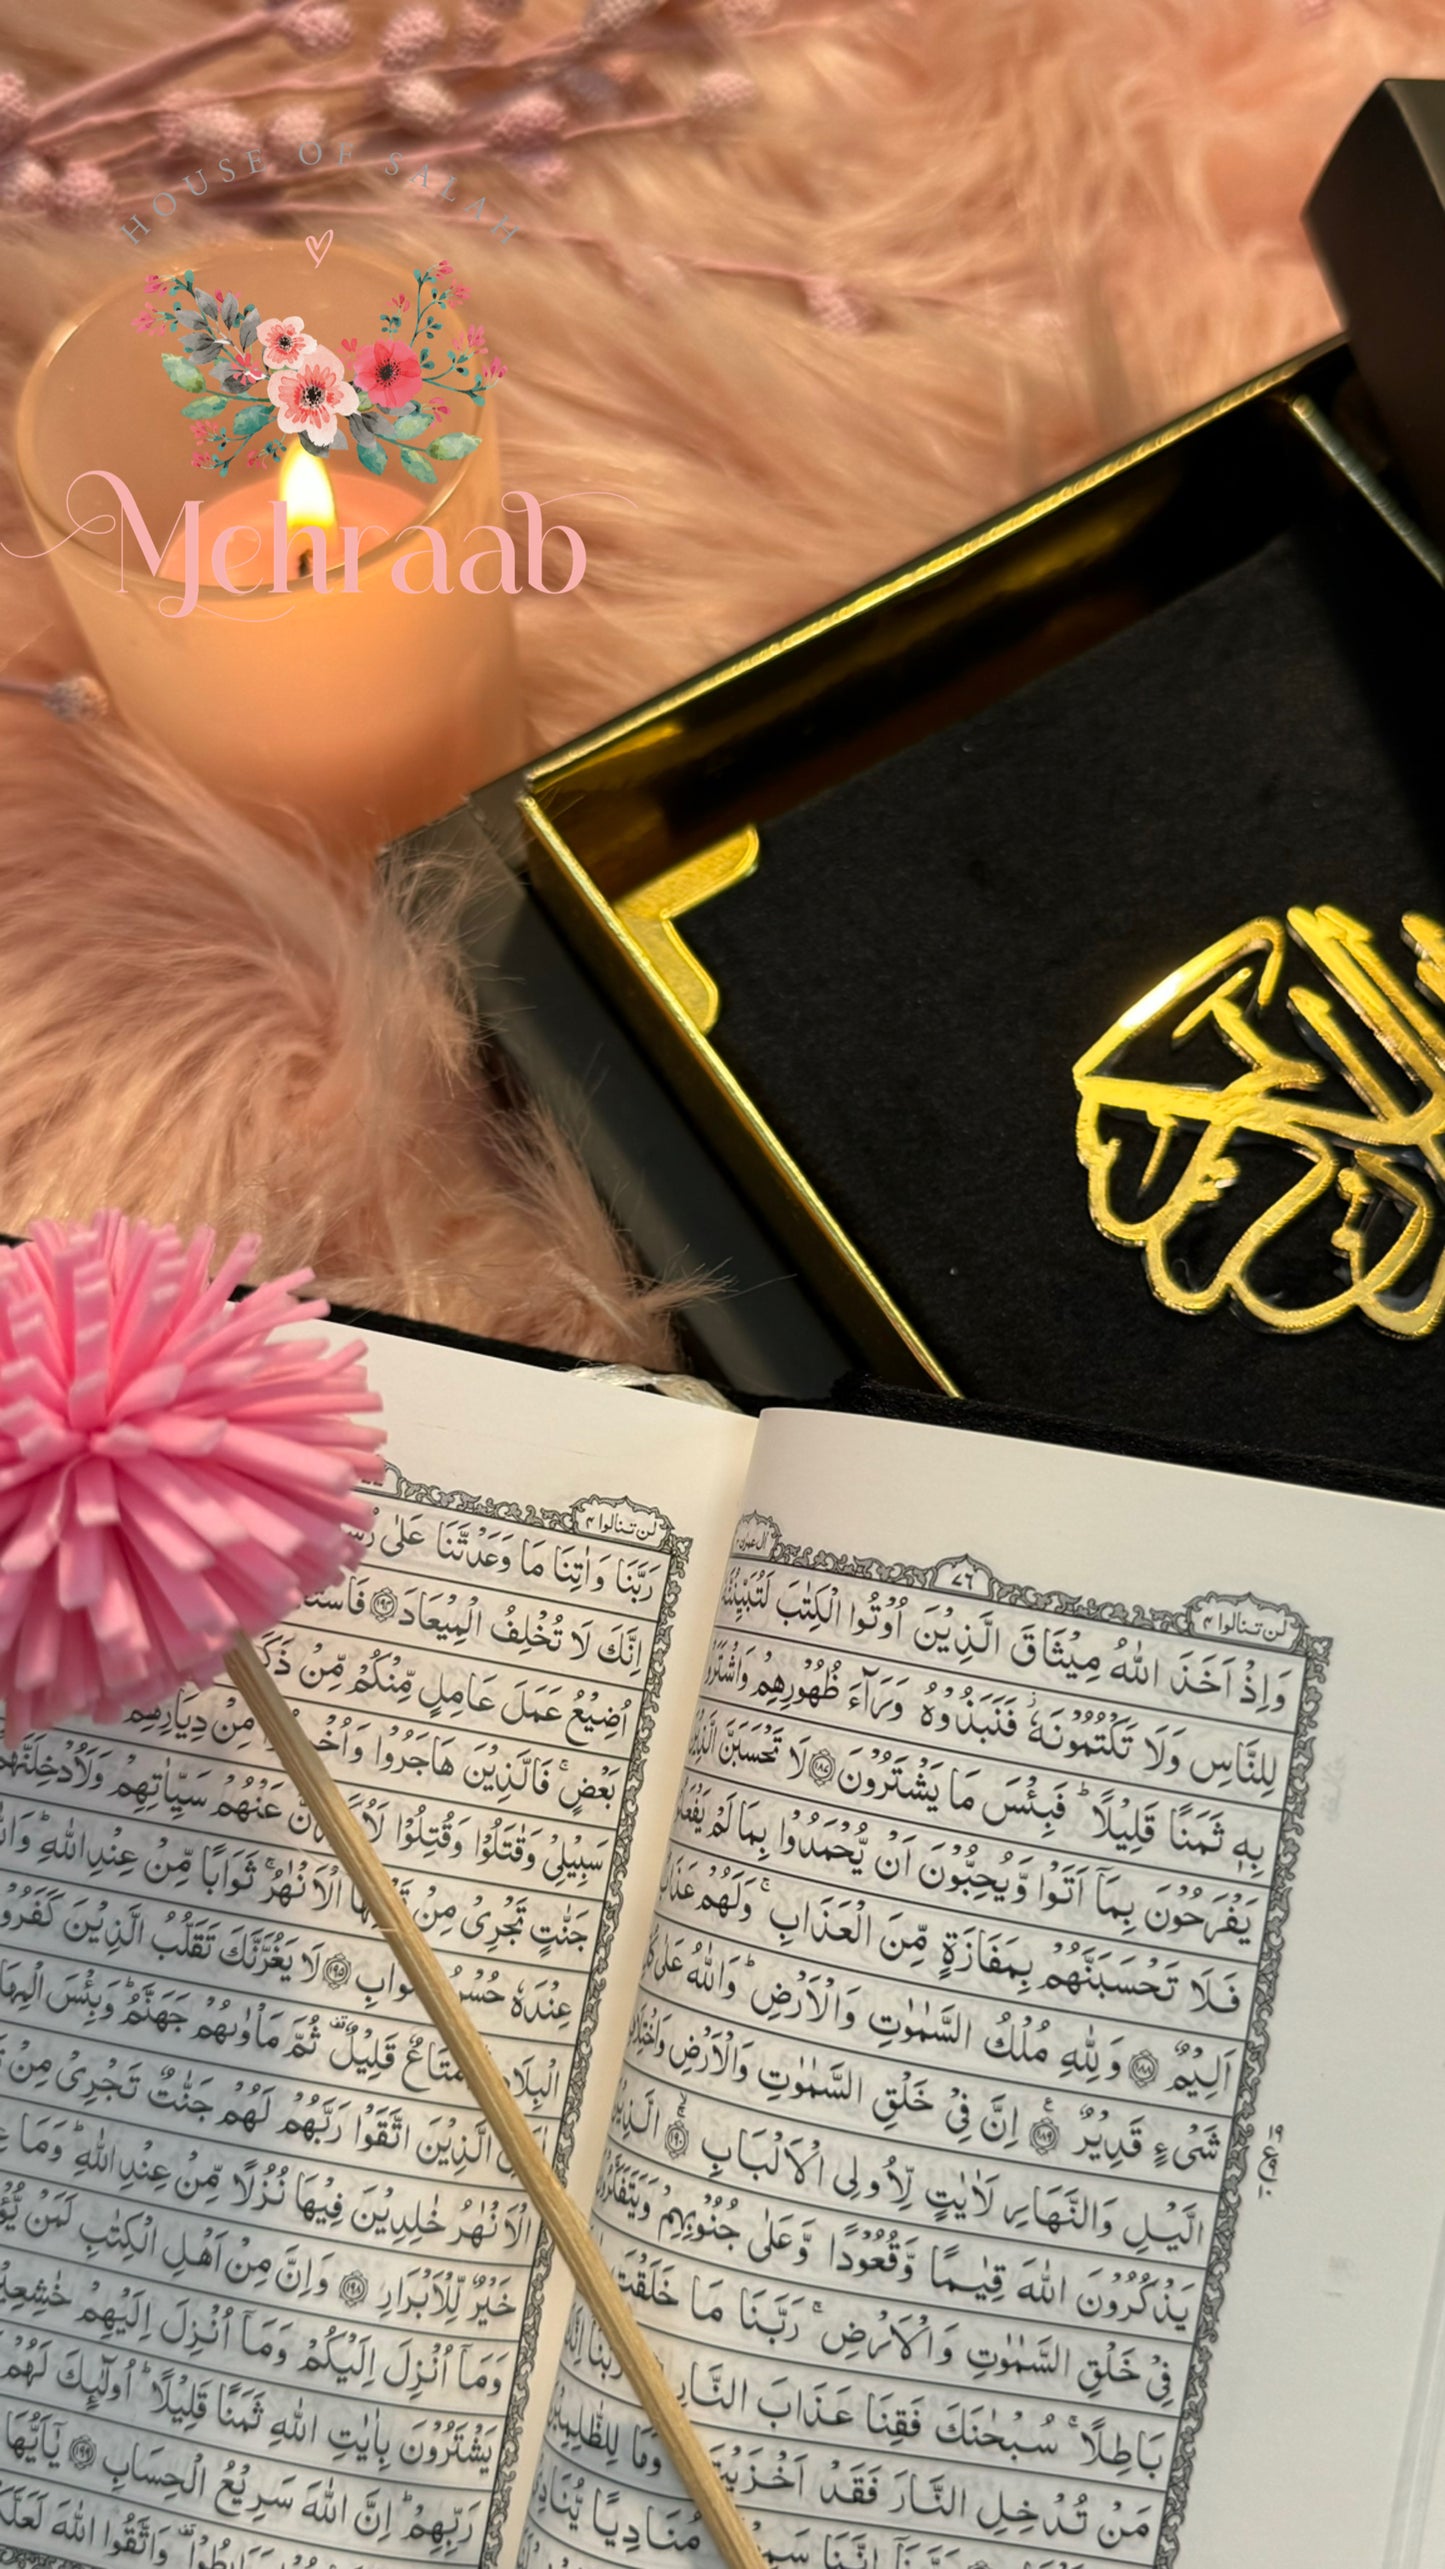 HOUSE OF SALAH
Mehraab
اٰل عمرٰن
٧٦
لن تنالوا ٤
وَاِذْ اَخَذَ اللّٰهُ مِيْثَاقَ الَّذِيْنَ اُوْتُوا الْكِتٰبَ لَتُبَيِّنُنَّهٗ
لِلنَّاسِ وَلَا تَكْتُمُوْنَهٗ ز فَنَبَذُوْهُ وَرَآءَ ظُهُوْرِهِمْ وَاشْتَرَوْا
بِهٖ ثَمَنًا قَلِيْلًا ؕ فَبِئْسَ مَا يَشْتَرُوْنَ ۝١٨٧ لَا تَحْسَبَنَّ الَّذِيْنَ
يَفْرَحُوْنَ بِمَآ اَتَوْا وَّيُحِبُّوْنَ اَنْ يُّحْمَدُوْا بِمَا لَمْ يَفْعَلُوْا
فَلَا تَحْسَبَنَّهُمْ بِمَفَازَةٍ مِّنَ الْعَذَابِ ۚ وَلَهُمْ عَذَابٌ
اَلِيْمٌ ۝١٨٨ وَلِلّٰهِ مُلْكُ السَّمٰوٰتِ وَالْاَرْضِ ؕ وَاللّٰهُ عَلٰى كُلِّ
شَىْءٍ قَدِيْرٌ ۝١٨٩ اِنَّ فِىْ خَلْقِ السَّمٰوٰتِ وَالْاَرْضِ وَاخْتِلَافِ
الَّيْلِ وَالنَّهَارِ لَاٰيٰتٍ لِّاُولِى الْاَلْبَابِ ۝١٩٠ الَّذِيْنَ
يَذْكُرُوْنَ اللّٰهَ قِيٰمًا وَّقُعُوْدًا وَّعَلٰى جُنُوْبِهِمْ وَيَتَفَكَّرُوْنَ
فِىْ خَلْقِ السَّمٰوٰتِ وَالْاَرْضِ ۚ رَبَّنَا مَا خَلَقْتَ
بَاطِلًا ۚ سُبْحٰنَكَ فَقِنَا عَذَابَ النَّارِ رَبَّنَا اِنَّكَ
مَنْ تُدْخِلِ النَّارَ فَقَدْ اَخْزَيْتَهٗ وَمَا لِلظّٰلِمِيْنَ
مُنَادِيًا يُّنَادِىْ
لن تنالوا ٤
رَبَّنَا وَاٰتِنَا مَا وَعَدْتَّنَا عَلٰى
اِنَّكَ لَا تُخْلِفُ الْمِيْعَادَ ۝١٩٤
اُضِيْعُ عَمَلَ عَامِلٍ مِّنْكُمْ مِّنْ ذَكَرٍ
بَعْضٍ ۚ فَالَّذِيْنَ هَاجَرُوْا وَاُخْرِجُوْا مِنْ دِيَارِهِمْ
سَبِيْلِىْ وَقٰتَلُوْا وَقُتِلُوْا لَاُكَفِّرَنَّ عَنْهُمْ سَيِّاٰتِهِمْ وَلَاُدْخِلَنَّهُمْ
جَنّٰتٍ تَجْرِىْ مِنْ تَحْتِهَا الْاَنْهٰرُ ۚ ثَوَابًا مِّنْ عِنْدِ اللّٰهِ ؕ
عِنْدَهٗ حُسْنُ الثَّوَابِ ۝١٩٥ لَا يَغُرَّنَّكَ تَقَلُّبُ الَّذِيْنَ كَفَرُوْا
الْبِلَادِ مَتَاعٌ قَلِيْلٌ ثُمَّ مَاْوٰىهُمْ جَهَنَّمُ ؕ وَبِئْسَ الْمِهَادُ
لٰكِنِ الَّذِيْنَ اتَّقَوْا رَبَّهُمْ لَهُمْ جَنّٰتٌ تَجْرِىْ مِنْ
الْاَنْهٰرُ خٰلِدِيْنَ فِيْهَا نُزُلًا مِّنْ عِنْدِ اللّٰهِ ؕ وَمَا
خَيْرٌ لِّلْاَبْرَارِ ۝١٩٨ وَاِنَّ مِنْ اَهْلِ الْكِتٰبِ لَمَنْ
وَمَآ اُنْزِلَ اِلَيْكُمْ وَمَآ اُنْزِلَ اِلَيْهِمْ خٰشِعِيْنَ
يَشْتَرُوْنَ بِاٰيٰتِ اللّٰهِ ثَمَنًا قَلِيْلًا ؕ اُولٰٓئِكَ لَهُمْ
رَبِّهِمْ ؕ اِنَّ اللّٰهَ سَرِيْعُ الْحِسَابِ ۝١٩٩ يٰٓاَيُّهَا
وَاتَّقُوا اللّٰهَ لَعَلَّكُمْ